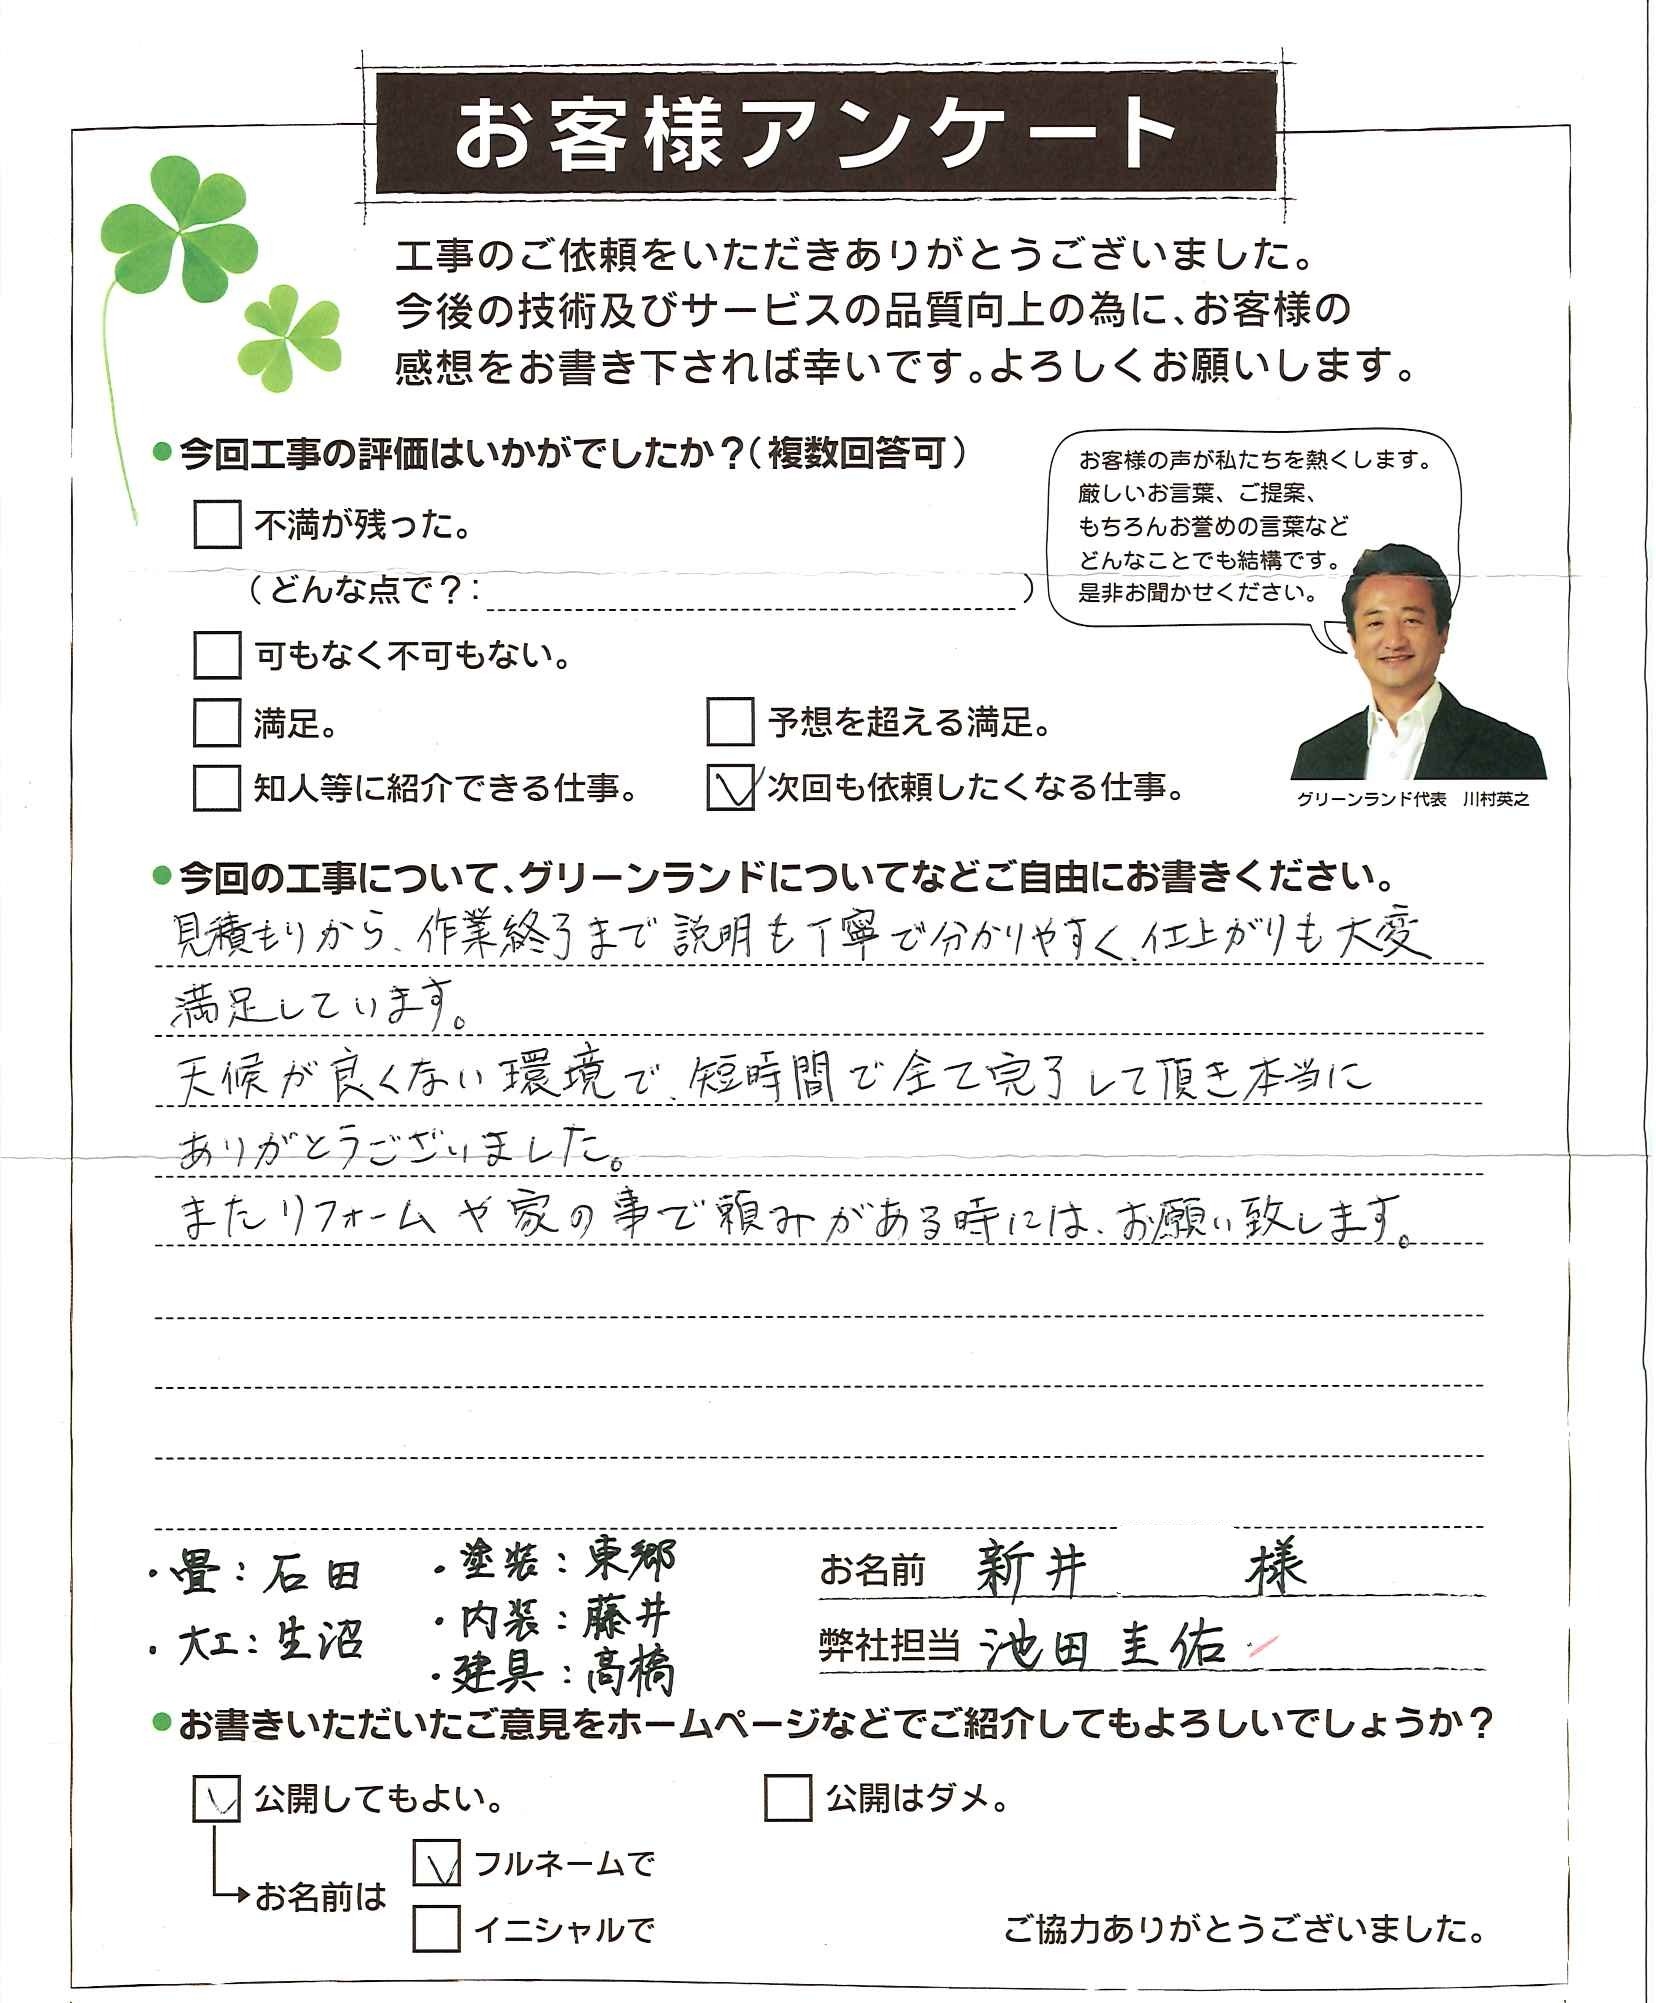 お客様アンケート
工事のご依頼をいただきありがとうございました。
今後の技術及びサービスの品質向上の為に、お客様の
感想をお書き下されば幸いです。よろしくお願いします。
●今回工事の評価はいかがでしたか？（複数回答可）
不満が残った。
（どんな点で？：　）
可もなく不可もない。
満足。
予想を超える満足。
知人等に紹介できる仕事。
次回も依頼したくなる仕事。
お客様の声が私たちを熱くします。
厳しいお言葉、ご提案、
もちろんお誉めの言葉など
どんなことでも結構です。
是非お聞かせください。
グリーンランド代表　川村英之
●今回の工事について、グリーンランドについてなどご自由にお書きください。
見積もりから、作業終了まで説明も丁寧で分かりやすく、仕上がりも大変
満足しています。
天候が良くない環境で、短時間で全て完了して頂き本当に
ありがとうございました。
またリフォームや家の事で頼みがある時には、お願い致します。
・畳：石田
・大工：生沼
・塗装：東郷
・内装：藤井
・建具：高橋
お名前　新井　様
弊社担当　池田圭佑
●お書きいただいたご意見をホームページなどでご紹介してもよろしいでしょうか？
公開してもよい。
公開はダメ。
お名前は
フルネームで
イニシャルで
ご協力ありがとうございました。